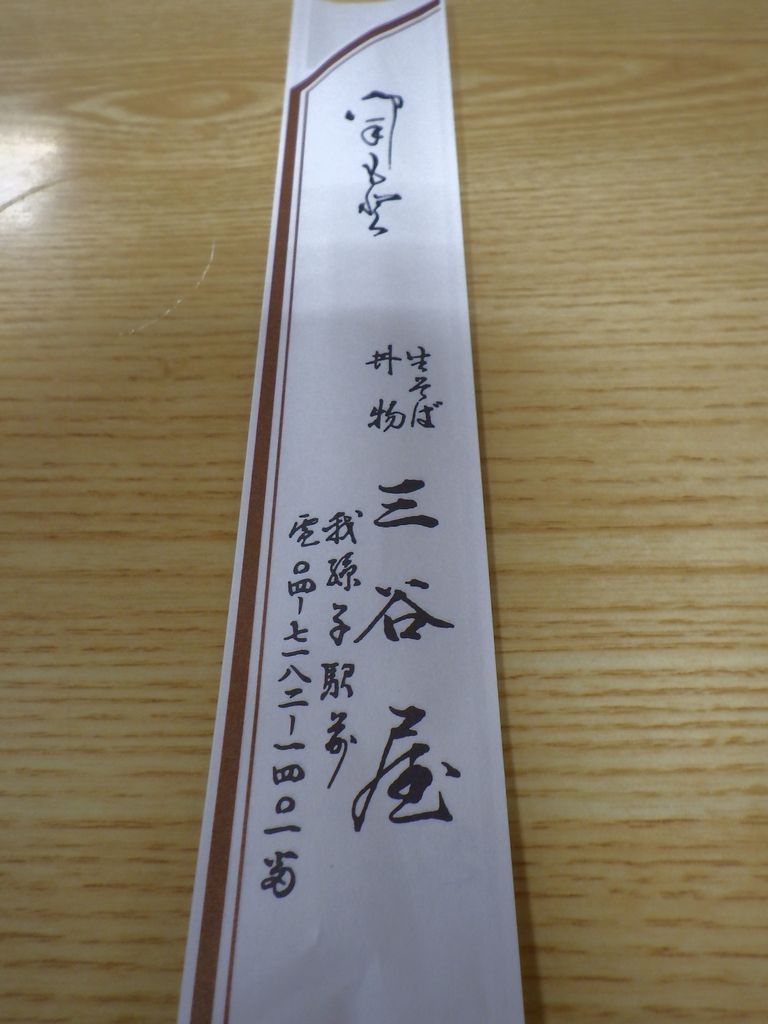 生そば
丼物
三谷屋
我孫子駅前
電〇四-七一八二-一四〇一番